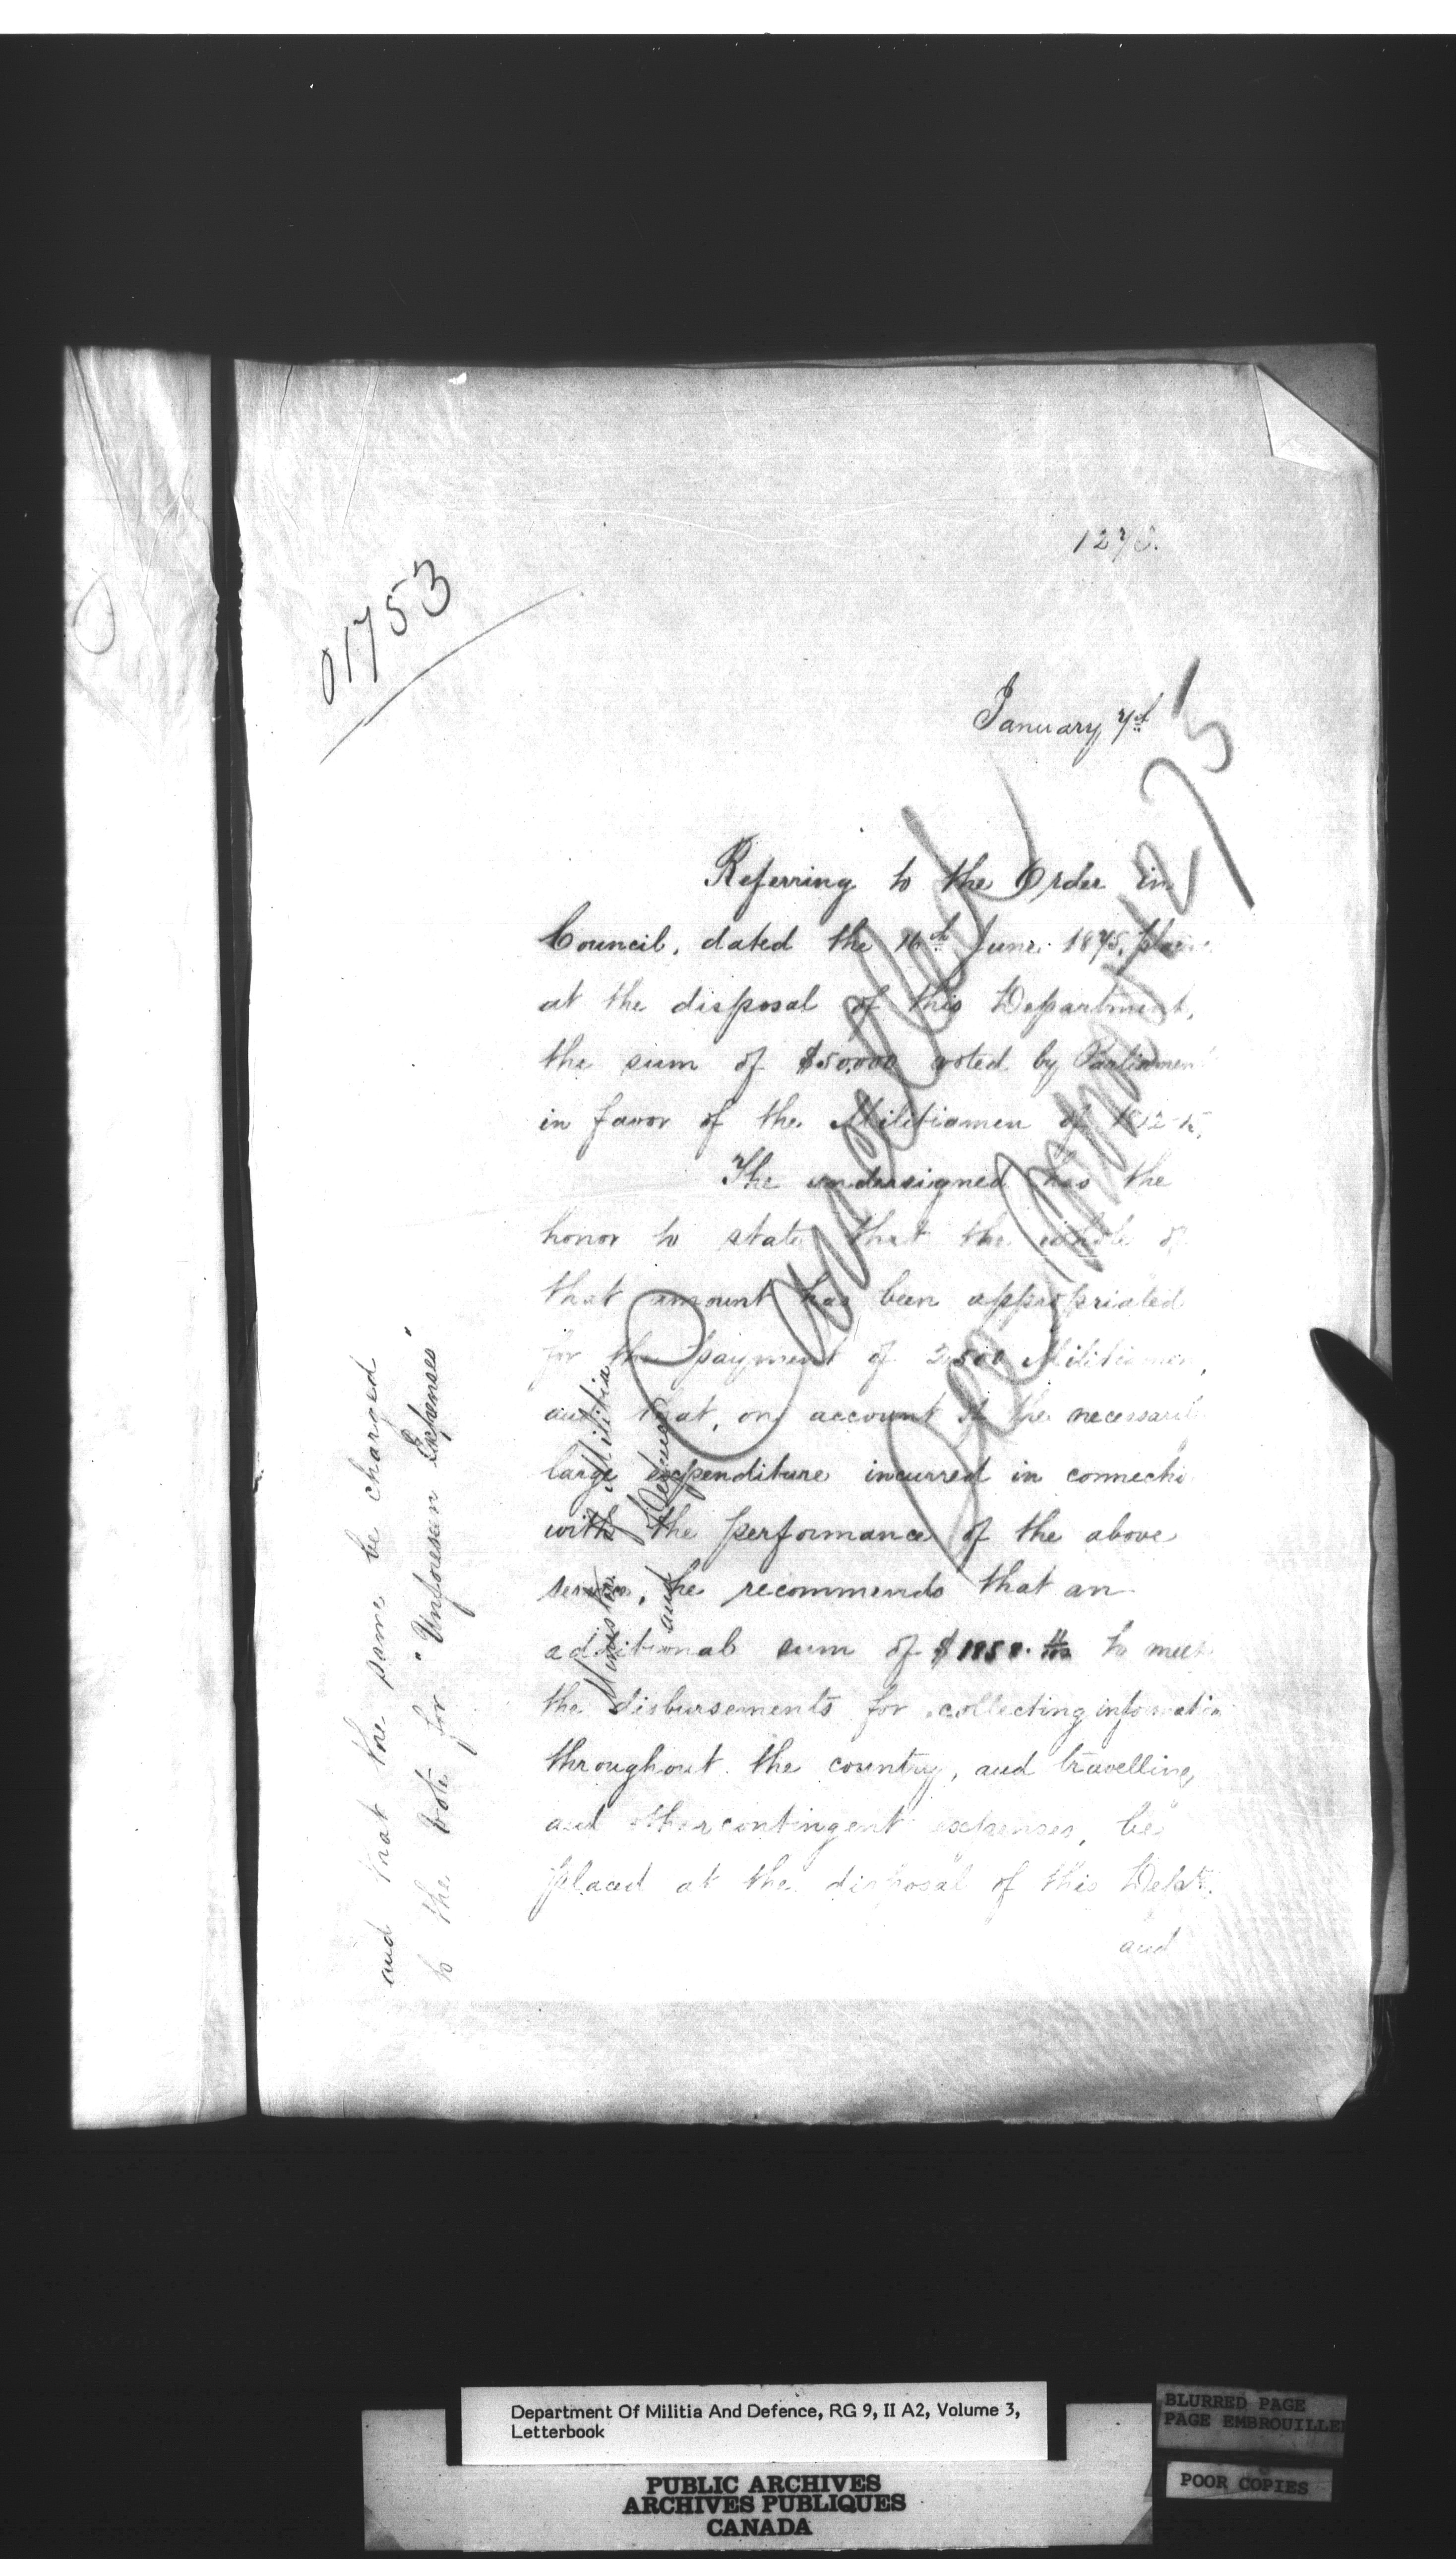 01753
January 7th
Referring to the Order in
Council, dated the 16th June 1875,
at the disposal of this Department,
the sum of $50,000 voted by Parliamen
in favor of the Militiamen of 1812-15,
The undersigned has the
honor to state that the whole of
that amount has been appropriated
for the payment of 2,500 Militiamen,
and that, on account of the necessarily
large expenditure incurred in connectio
with the performance of the above
service, he recommends that an
additional sum of $ to meet
the disbursements for collecting information
throughout the country, and travelling
and other contingent expenses, be
placed at the disposal of this Dept.
and
and that the same be charged
to the Vote for "Unforeseen Expenses"
Minister of Militia
and Defence
Cancelled
See 1275
Department Of Militia And Defence, RG 9, II A2, Volume 3,
Letterbook
PUBLIC ARCHIVES
ARCHIVES PUBLIQUES
CANADA
BLURRED PAGE
PAGE EMBROUILLE
POOR COPIES